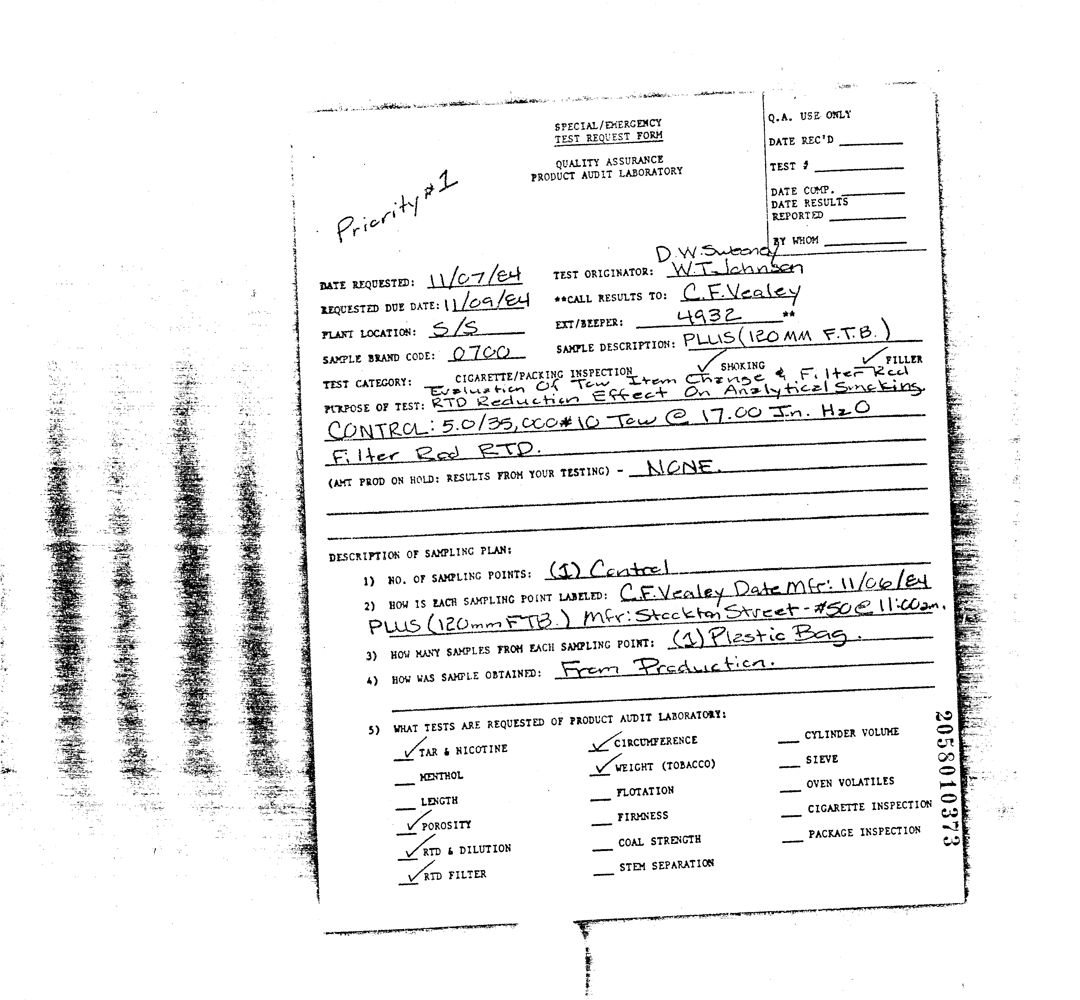 SPECIAL/EMERGENCY
TEST REQUEST FORM
QUALITY ASSURANCE
PRODUCT AUDIT LABORATORY
Priority #1
Q.A. USE ONLY
DATE REC'D
TEST #
DATE COMP.
DATE RESULTS
REPORTED
BY WHOM
D.W. Sweeney
DATE REQUESTED: 11/07/84 TEST ORIGINATOR: W.T. Johnson
REQUESTED DUE DATE: 11/09/84 **CALL RESULTS TO: C.F. Vealey
PLANT LOCATION: S/S EXT/BEEPER: 4932 **
SAMPLE BRAND CODE: 0700 SAMPLE DESCRIPTION: PLUS (120 MM F.T.B.)
TEST CATEGORY: CIGARETTE/PACKING INSPECTION ✓ SMOKING ✓ FILLER
Evaluation Of Tow Item Change & Filter Rod
PURPOSE OF TEST: RTD Reduction Effect On Analytical Smoking.
CONTROL: 5.0/35,000 #10 Tow @ 17.00 In. H2O
Filter Rod RTD.
(AMT PROD ON HOLD: RESULTS FROM YOUR TESTING) - NONE.
DESCRIPTION OF SAMPLING PLAN:
1) NO. OF SAMPLING POINTS: (1) Control
2) HOW IS EACH SAMPLING POINT LABELED: C.F. Vealey Date Mfr: 11/06/84
PLUS (120mm FTB.) Mfr: Stockton Street - #50 @ 11:00am.
3) HOW MANY SAMPLES FROM EACH SAMPLING POINT: (1) Plastic Bag.
4) HOW WAS SAMPLE OBTAINED: From Production.
5) WHAT TESTS ARE REQUESTED OF PRODUCT AUDIT LABORATORY:
✓ TAR & NICOTINE ✓ CIRCUMFERENCE CYLINDER VOLUME
MENTHOL ✓ WEIGHT (TOBACCO) SIEVE
LENGTH FLOTATION OVEN VOLATILES
✓ POROSITY FIRMNESS CIGARETTE INSPECTION
✓ RTD & DILUTION COAL STRENGTH PACKAGE INSPECTION
✓ RTD FILTER STEM SEPARATION
2058010373